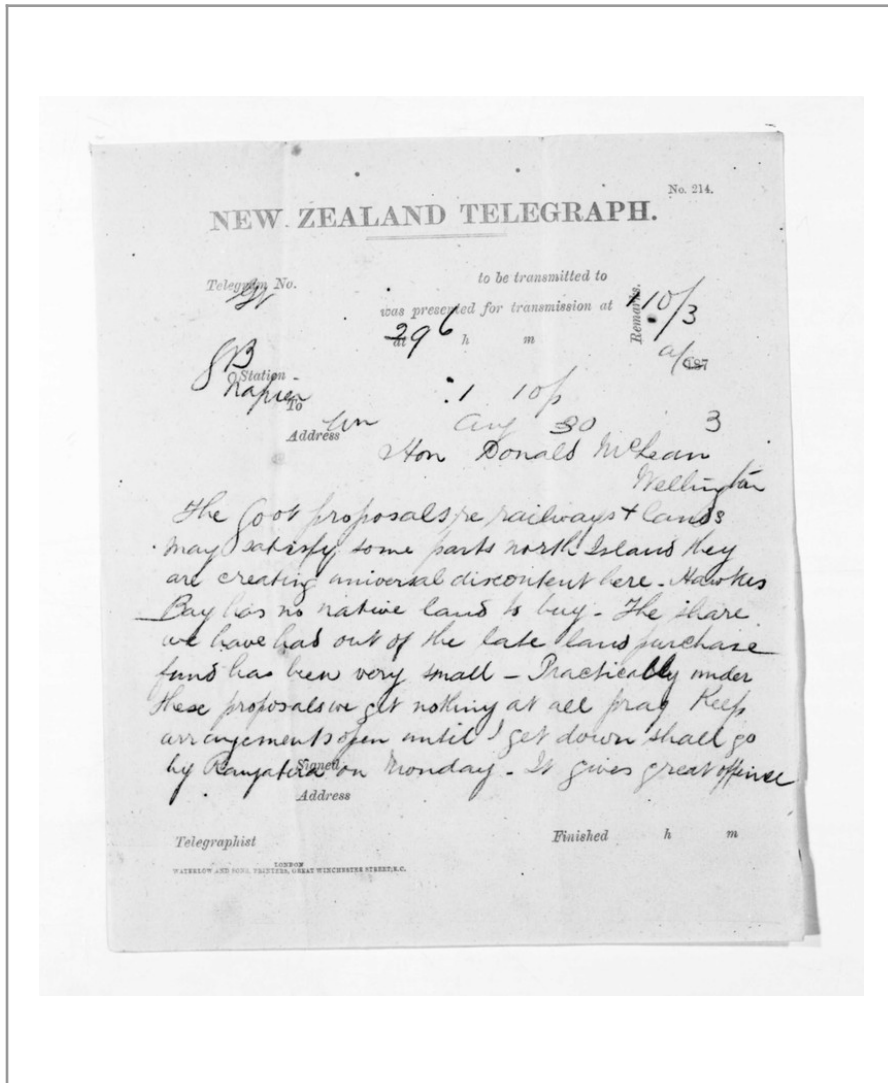 No. 214.
NEW ZEALAND TELEGRAPH.
Telegram No. to be transmitted to
was presented for transmission at
Remarks.
110/3
at 296 h m
a/
187
Station
Napier
To :1 10p
Address Wn Aug 30 3
Hon Donald McLean
Wellington
The Govt proposals re railways + lands
may satisfy some parts north Island they
are creating universal discontent here - Hawkes
Bay has no native land to buy - The share
we have had out of the late land purchase
fund has been very small - Practically under
these proposals we get nothing at all pray Keep
arrangements open until I get down shall go
by Rangatira on Monday - It gives great offence
Signed
Address
Telegraphist Finished h m
LONDON
WATERLOW AND SONS, PRINTERS, GREAT WINCHESTER STREET, E.C.